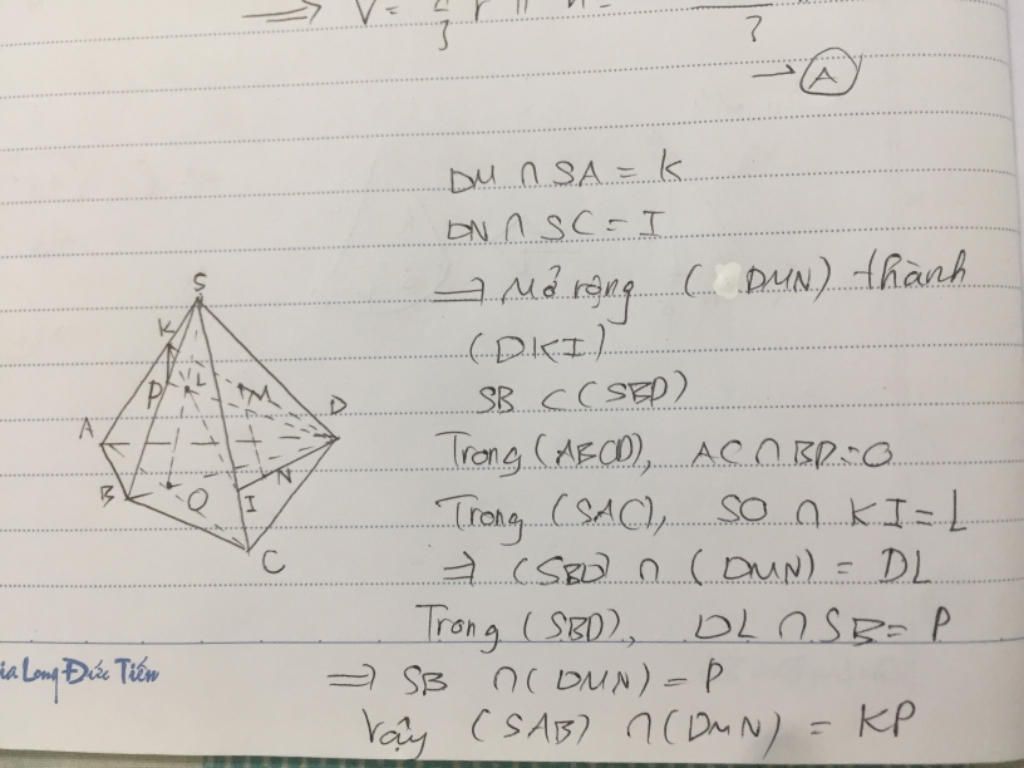 ⟹ V =
3
?
→ A
DM ∩ SA = K
DN ∩ SC = I
⟹ Mở rộng ( DMN) thành
(DKI)
SB ⊂ (SBD)
Trong (ABCD), AC ∩ BD = O
Trong (SAC), SO ∩ KI = L
⟹ (SBD) ∩ (DMN) = DL
Trong (SBD), DL ∩ SB = P
⟹ SB ∩ (DMN) = P
Vậy (SAB) ∩ (DMN) = KP
S
K
P L M D
A
B O I N
C
ia Long Đức Tiến